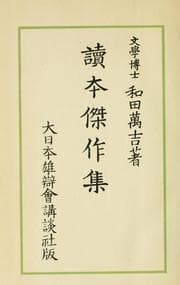 文學博士 和田萬吉著
讀本傑作集
大日本雄辯會講談社版